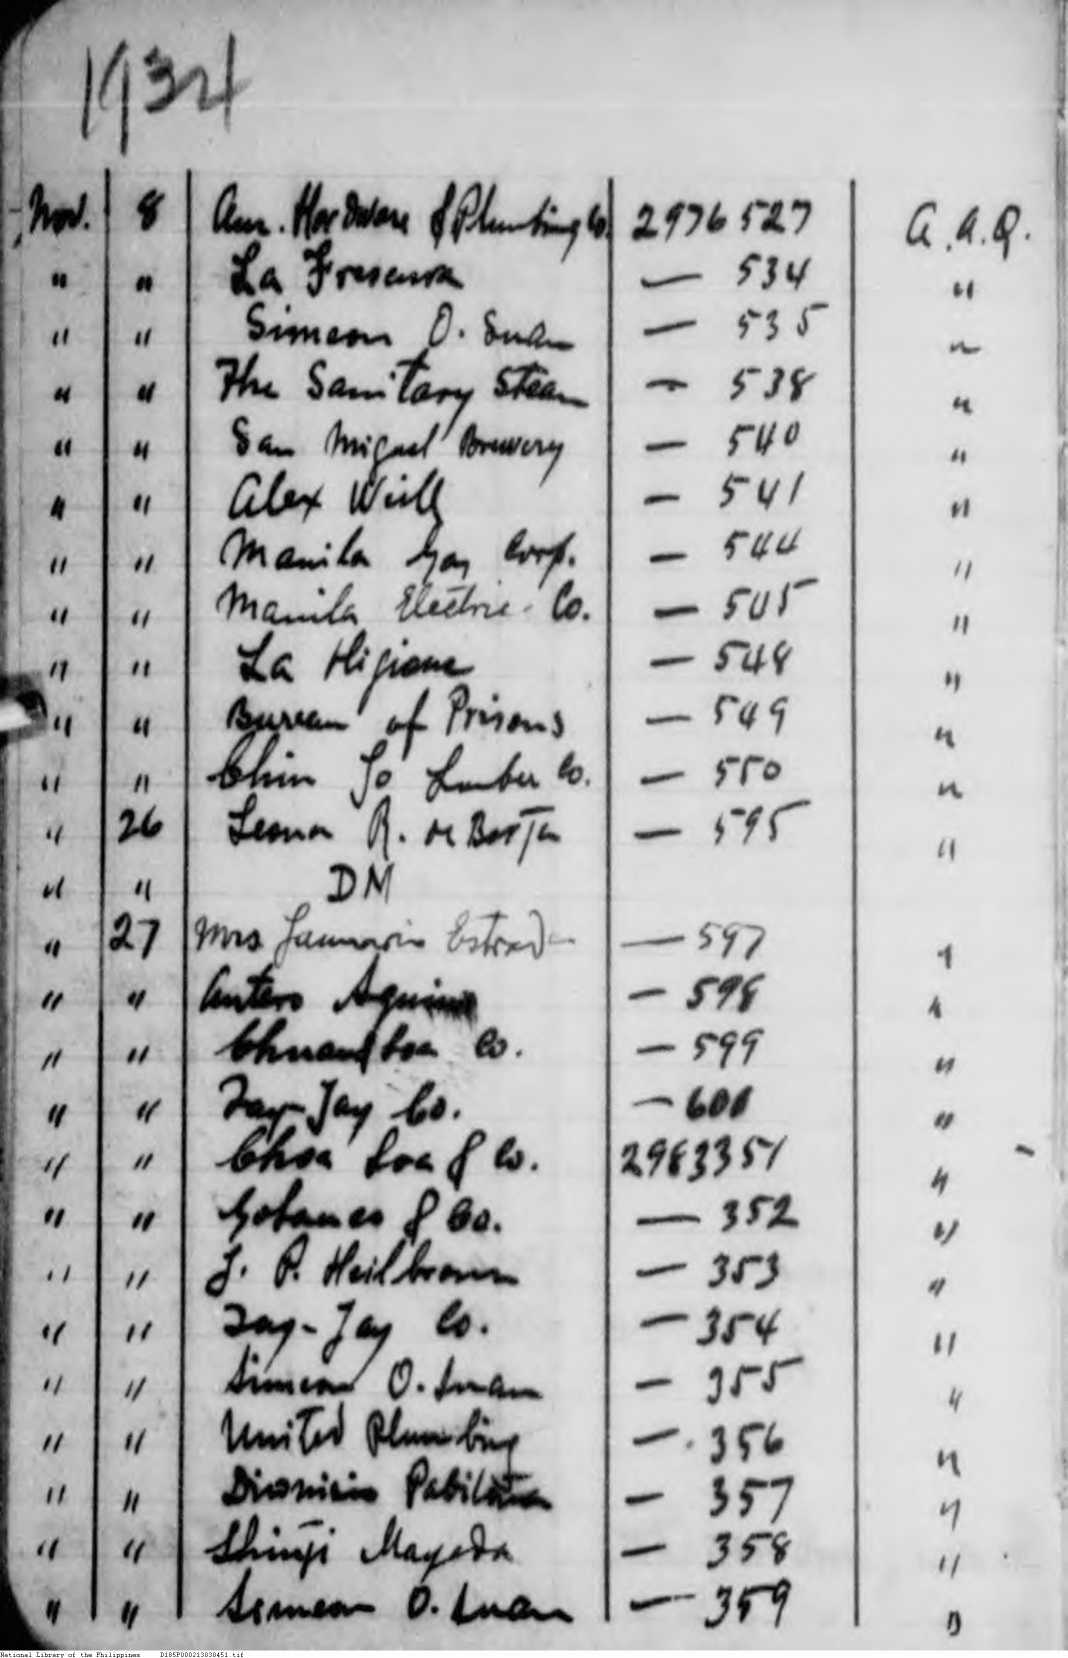 1934
Nov. 8 Am. Hardware & Plumbing Co. 2976527 A.A.Q.
" " La Fresensa — 534 "
" " Simeon O. Suan — 535 "
" " The Sanitary Steam — 538 "
" " San Miguel Brewery — 540 "
" " Alex — 541 "
" " Manila Gas Corp. — 544 "
" " Manila Electric Co. — 545 "
" " La Higiene — 548 "
" " Bureau of Prisons — 549 "
" " Chin Lumber Co. — 550 "
" 26 Leonor R. de Borja — 595 "
" " DM
" 27 Mrs Januario Estrada — 597 "
" " Antero Aquino — 598 "
" " Co. — 599 "
" " Tay-Jay Co. — 600 "
" " Choa Loa & Co. 2983351 "
" " Gotamco & Co. — 352 "
" " J. P. Heilbronn — 353 "
" " Tay-Jay Co. — 354 "
" " Simeon O. Suan — 355 "
" " United Plumbing — 356 "
" " Dionisio — 357 "
" " Shinji Mayeda — 358 "
" " Simeon O. Suan — 359 "
National Library of the Philippines D185P000213030451.tif